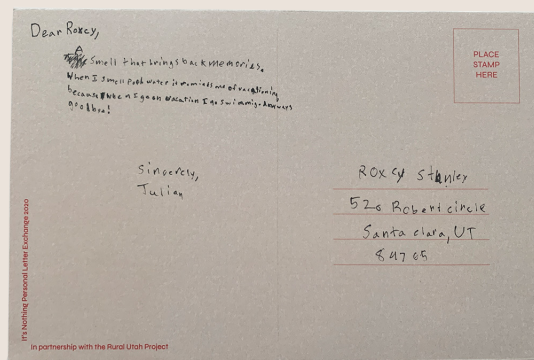 Dear Roxcy,
A Smell that brings back memories.
When I smell Pool water it reminds me of vacationing
because when I go on vacation I go swimming. Anyways
goodbye!
Sincerely,
Julian
PLACE
STAMP
HERE
Roxcy Stanley
526 Robert circle
Santa clara, UT
84765
It's Nothing Personal Letter Exchange 2020
In partnership with the Rural Utah Project